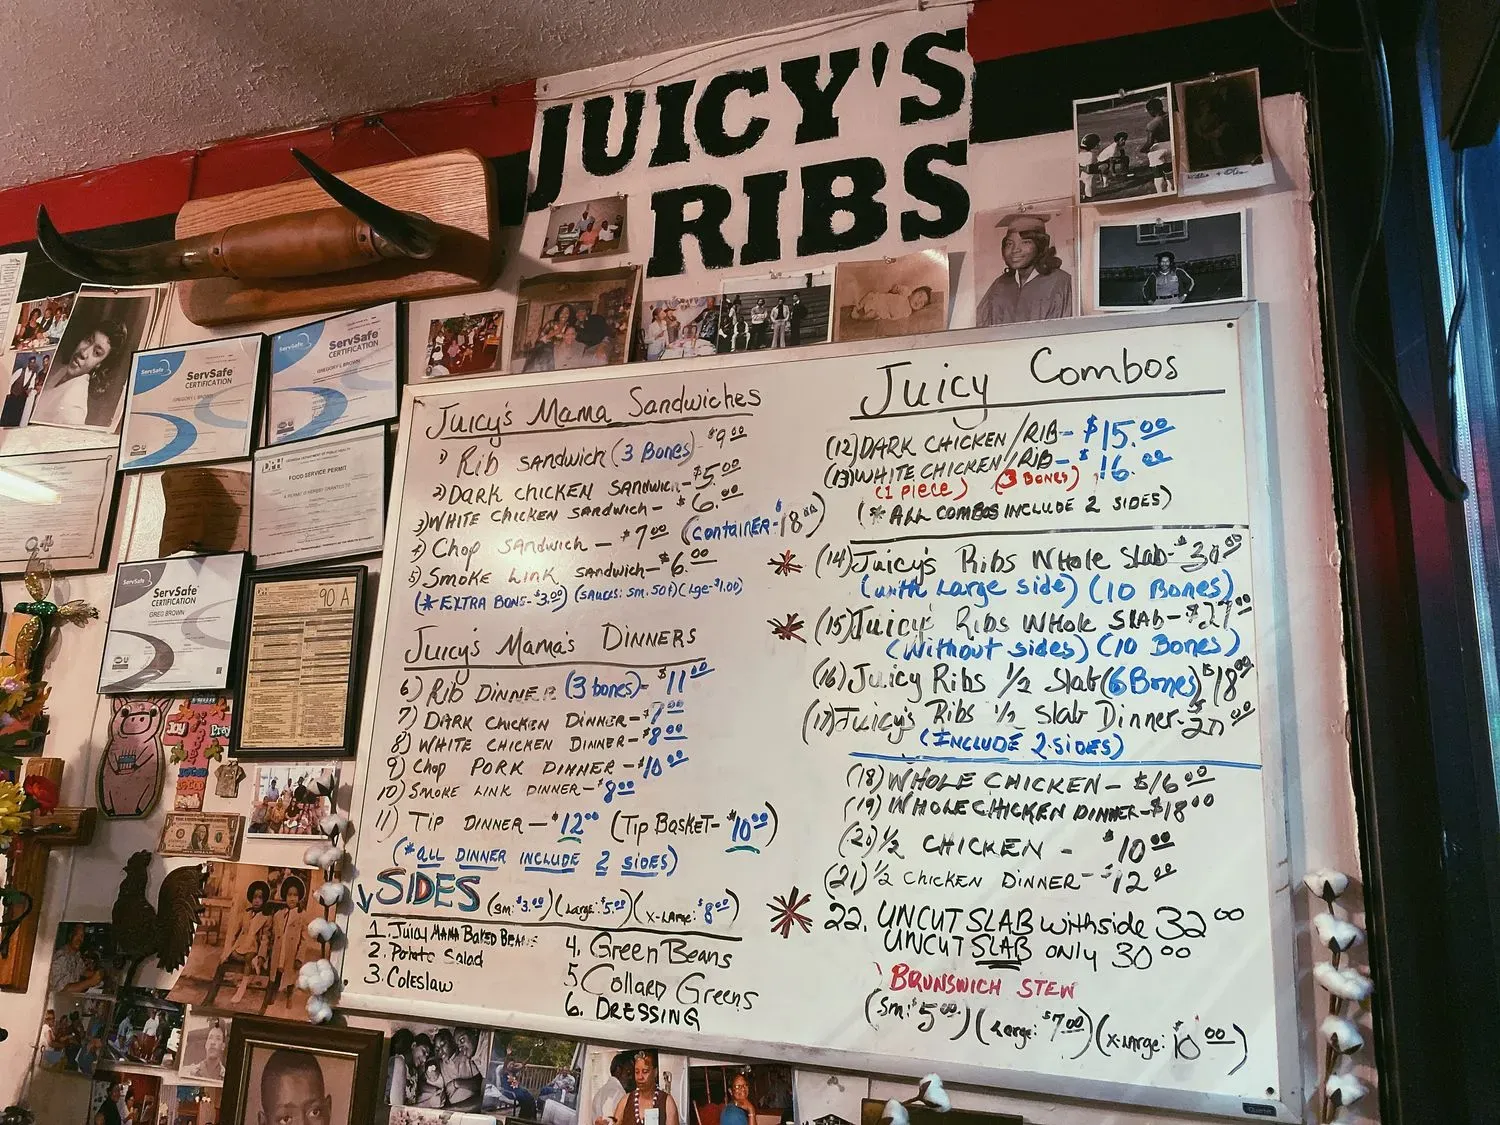 JUICY'S
RIBS
ServSafe
CERTIFICATION
GREGORY L BROWN
ServSafe
CERTIFICATION
GREGORY L BROWN
DPH
FOOD SERVICE PERMIT
ServSafe
CERTIFICATION
GREG BROWN
90 A
Juicy's Mama Sandwiches
1) Rib SANDWICH (3 Bones) - $9.00
2) DARK CHICKEN SANDWICH - $5.00
3) WHITE CHICKEN SANDWICH - $6.00
4) Chop SANDWICH - $7.00 (CONTAINER - $18.00)
5) SMOKE LINK SANDWICH - $6.00
(* EXTRA BONE - $3.00) (SAUCES: SM. 50¢) (Lge - $1.00)
Juicy's Mama's DINNERS
6) RIB DINNER (3 bones) - $11.00
7) DARK CHICKEN DINNER - $7.00
8) WHITE CHICKEN DINNER - $8.00
9) Chop PORK DINNER - $10.00
10) SMOKE LINK DINNER - $8.00
11) TIP DINNER - $12.00 (TIP BASKET - $10.00)
(* ALL DINNER INCLUDE 2 SIDES)
SIDES (sm: $3.00) (Large: $5.00) (X-LARGE: $8.00)
1. Juicy MAMA BAKED BEANS
2. Potato Salad
3. Coleslaw
4. Green Beans
5 Collard Greens
6. DRESSING
Juicy Combos
(12) DARK CHICKEN/RIB - $15.00
(13) WHITE CHICKEN/RIB - $16.00
(1 Piece) (3 BONES)
(* ALL COMBOS INCLUDE 2 SIDES)
* (14) Juicy's Ribs Whole Slab - $30.00
(with Large side) (10 Bones)
* (15) Juicy's Ribs WHOLE SLAB - $27.00
(Without sides) (10 Bones)
(16) Juicy Ribs 1/2 Slab (6 Bones) $18.00
(17) Juicy's Ribs 1/2 Slab Dinner - $20.00
(INCLUDE 2 SIDES)
(18) WHOLE CHICKEN - $16.00
(19) WHOLE CHICKEN DINNER - $18.00
(20) 1/2 CHICKEN - $10.00
(21) 1/2 CHICKEN DINNER - $12.00
* 22. UNCUT SLAB with side 32.00
UNCUT SLAB only 30.00
BRUNSWICH STEW
(Sm: $5.00) (Large: $7.00) (X-LArge: $10.00)